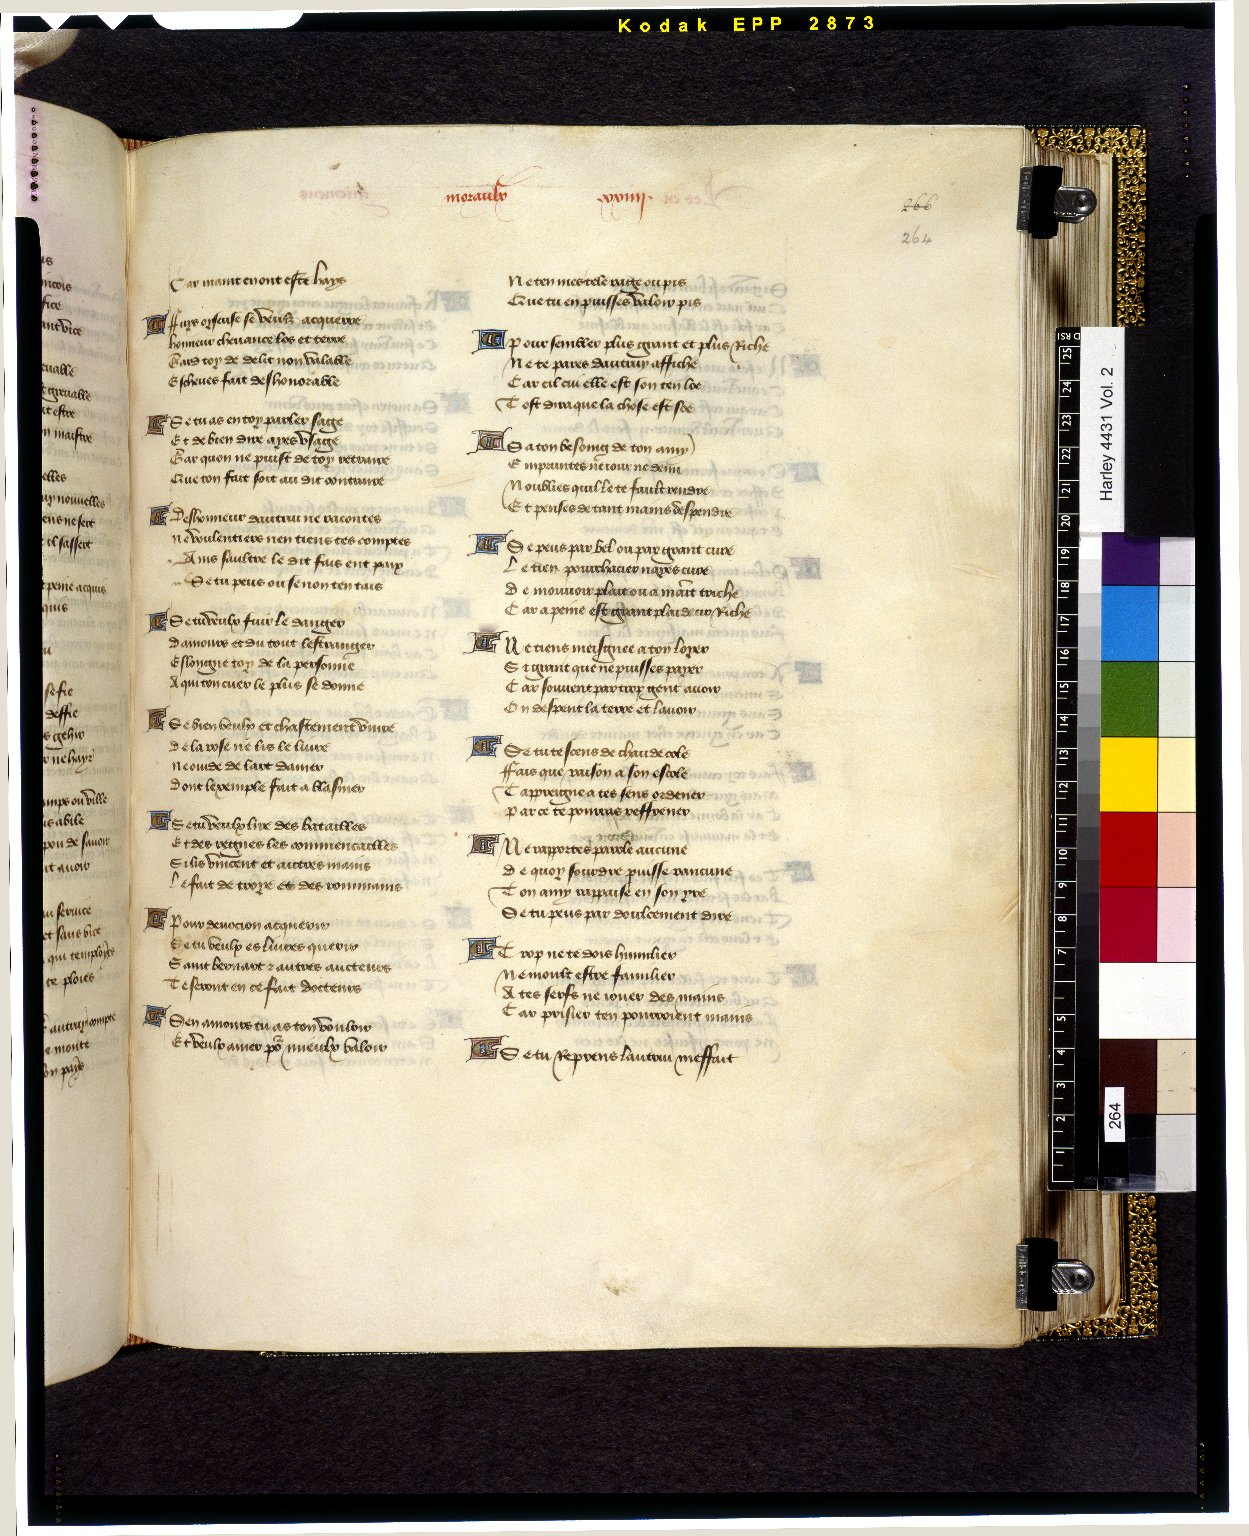 Kodak EPP 2873
moraulx
xxviiij.
266
264
Car maint en ont este hays
Fuys oyseuse se veulx acquerre
honneur chevance los et terre
Gard toy de delit non valable
Escheves fait deshonorable
Se tu as en toy parler sage
Et de bien dire ayes usage
Gar quon ne puist de toy retraire
Que ton fait soit au dit contraire
Deshonneur dautrui ne racontes
ne voulentiers nen tiens tes comptes
Ains saultre le dit fais ent paix
Se tu peus ou se non ten tais
Se tu veulx fuir le danger
damours et du tout lestranger
Eslongne toy de la personne
A qui ton cuer le plus se donne
Se bien veulx et chastement vivre
de la rose ne lis le livre
ne ovide de lart damer
dont lexemple fait a blasmer
Se tu veulx lire des batailles
Et des regnes les commencailles
Si lis vincent et autres mains
Le fait de troye et des rommains
Pour devocion acquerir
Se tu veulx es livres querir
Saint bernart et autres aucteurs
Te seront en ce fait docteurs
Sen amours tu as ton vouloir
Et veulx amer por mieulx valoir
Ne ten mes tele rage ou pis
Que tu en puisses valoir pis
Pour sembler plus grant et plus Riche
Ne te pares dautruy affiche
Car cil cui elle est son ten loe
Tost dira que la chose est soe
Sa ton besoing de ton amy
Empruntes ne jour ne demi
Noublies quil le te fault rendre
Et penses de tant mains despendre
Se peus par bel ou par grant cure
Le tien pourchacier nayes cure
de mouvoir plait ou a mart triche
Car a peine est grant plaideur Riche
Ne tiens meisgnee a ton loyer
Si grant que ne puisses payer
Car souvent par trop gent avoir
On despent la terre et lavoir
Se tu te scens de chaude cole
Ffais que raison a son escole
Tappreigne a tes sens ordener
Par ce te pourras reffrener
Ne rapportes parole aucune
de quoy sourdre puisse rancune
Ton amy rappaise en son yre
Se tu peus par doulcement dire
Trop ne te dois humilier
Ne moult estre familier
A tes serfs ne jouer des mains
Car prisier ten pourroient mains
Se tu Reprens lautrui meffait
Harley 4431 Vol. 2
264